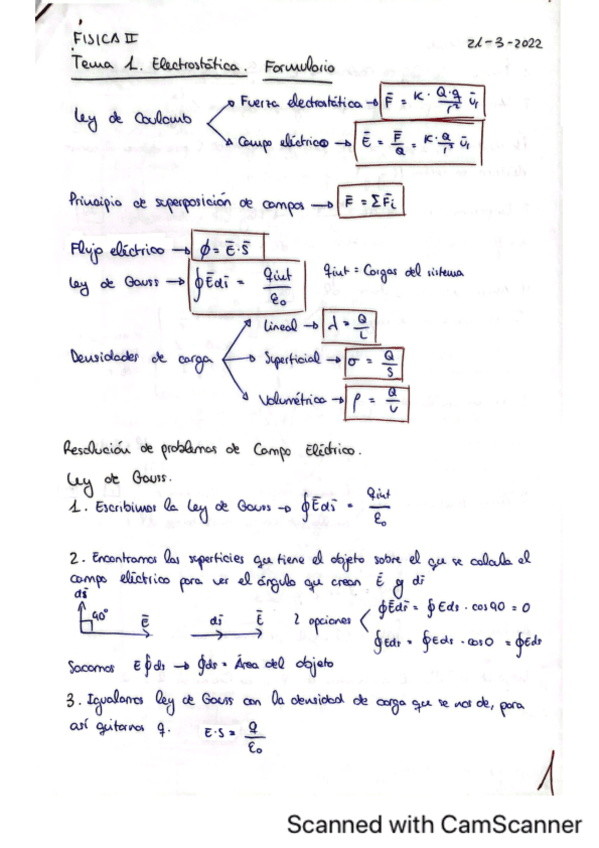 FISICA II
21-3-2022
Tema 1. Electrostática. Formulario
Ley de Coulomb
Fuerza electrostática → F̄ = K · Q·q / r² ūr
Campo eléctrico → Ē = F̄ / Q = K·Q / r² ūr
Principio de superposición de campos → F̄ = ΣF̄i
Flujo eléctrico → ϕ = Ē·S̄
Ley de Gauss → ∮Ēds̄ = qint / ε₀
qint = Cargas del sistema
Densidades de carga
Lineal → λ = Q / L
Superficial → σ = Q / S
Volumétrica → ρ = Q / V
Resolución de problemas de Campo Eléctrico.
Ley de Gauss.
1. Escribimos la Ley de Gauss → ∮Ēds̄ = qint / ε₀
2. Encontramos las superficies que tiene el objeto sobre el que se calcula el
campo eléctrico para ver el ángulo que crean Ē y ds̄
ds̄ 90° Ē
ds̄ Ē
2 opciones
∮Ēds̄ = ∮Eds · cos90 = 0
∮Ēds̄ = ∮Eds · cos0 = ∮Eds
Sacamos E∮ds → ∮ds = Área del objeto
3. Igualamos ley de Gauss con la densidad de carga que se nos de, para
así quitarnos q. E·S = q / ε₀
1
Scanned with CamScanner